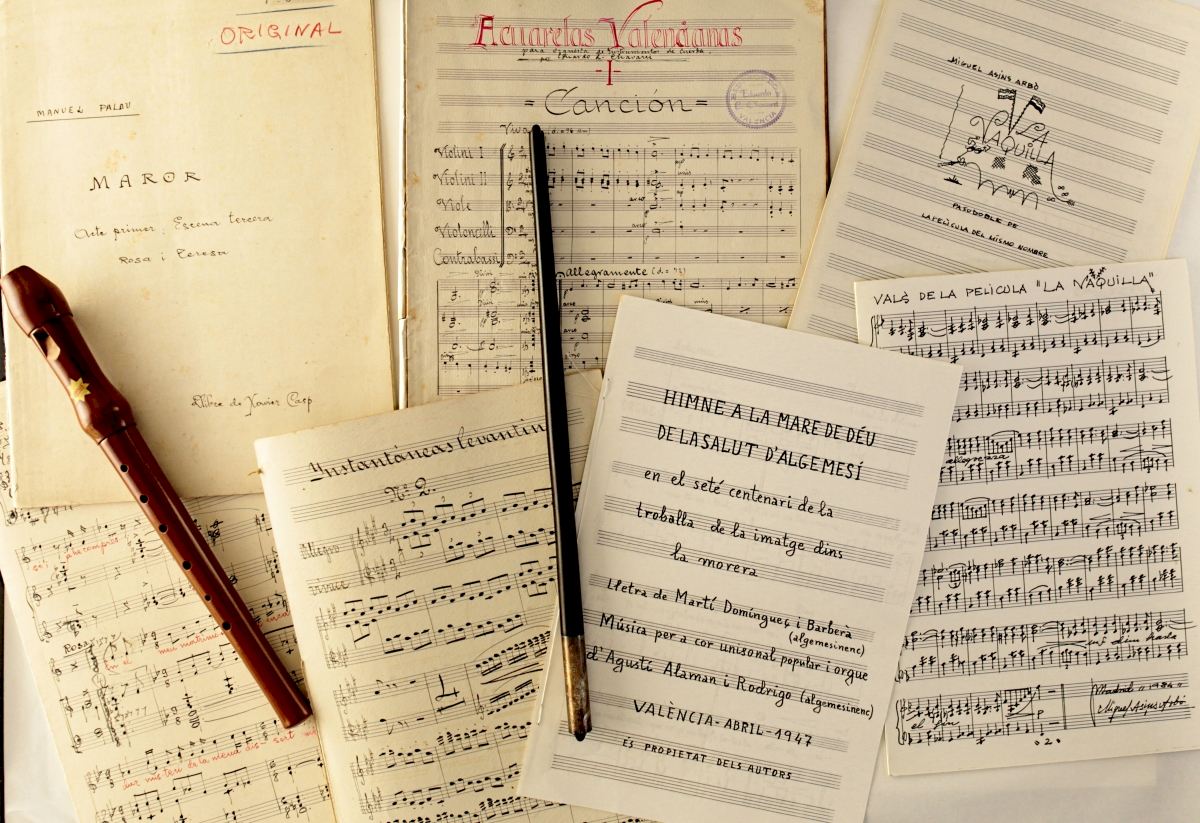 ORIGINAL
MANUEL PALAU
MAROR
Acte primer, Escena tercera
Rosa i Teresa
Llibre de Xavier Casp
Acuarelas Valencianas
para orquesta de instrumentos de cuerda
por Eduardo L. Chavarri
-I-
=Canción=
Violini I
Violini II
Viole
Violoncelli
Contrabassi
allegramente
MIGUEL ASINS ARBÓ
LA
VAQUILLA
PASODOBLE DE
LA PELÍCULA DEL MISMO NOMBRE
VALS DE LA PELÍCULA "LA VAQUILLA"
allegrezza
Madrid 1984
Miguel Asins Arbó
"2"
Ynstantáneas levantin
Nº 2.
Allegro
vivace
HIMNE A LA MARE DE DÉU
DE LA SALUT D'ALGEMESÍ
en el seté centenari de la
troballa de la imatge dins
la morera
Lletra de Martí Domínguez i Barberà
(algemesinenc)
Música per a cor unisonal popular i orgue
d'Agustí Alaman i Rodrigo (algemesinenc)
VALÈNCIA-ABRIL-1947
ÉS PROPIETAT DELS AUTORS
Rosa
En el meu matrimo